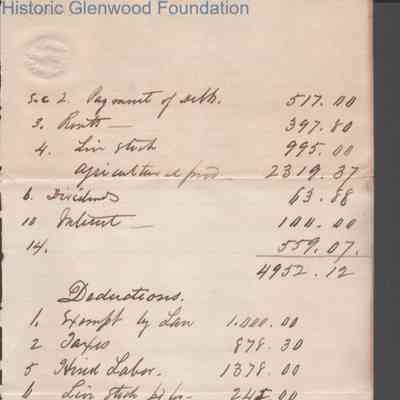 Historic Glenwood Foundation
Sec 2. Payment of debts. 517.00
3. Rents — 397.80
4. Live stock 995.00
Agricultural prod — 2319.37
6. Dividends 63.88
10 Interest — 100.00
14. 559.07.
4952.12
Deductions.
1. Exempt by Law 1.000.00
2 Taxes 878.30
5 Hired Labor. 1378.00
6 Live stock 245.00